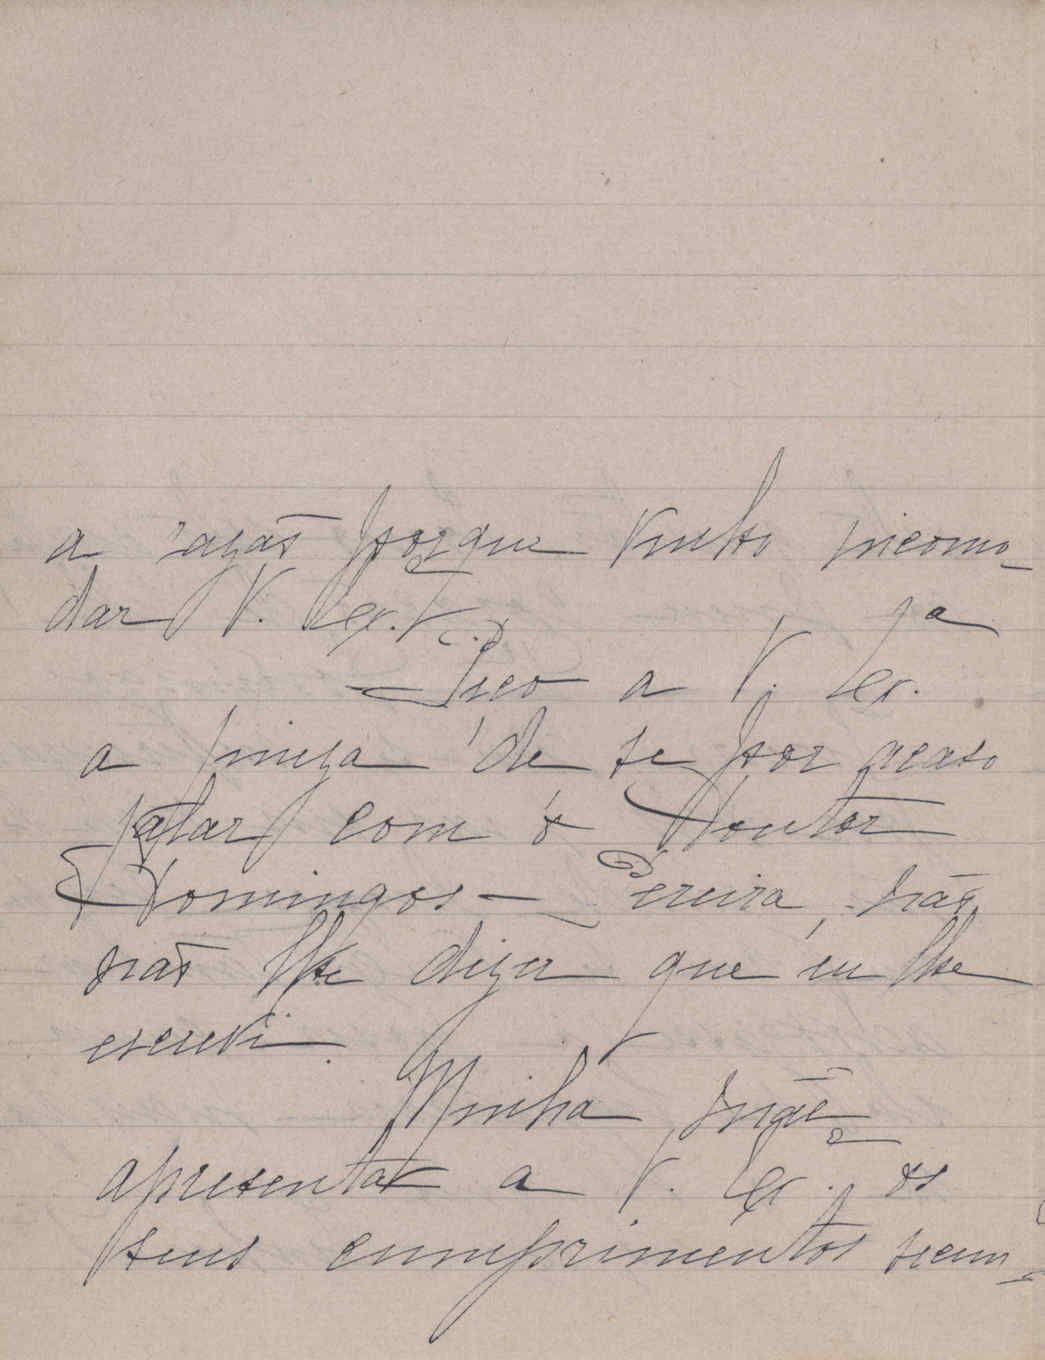 a razão porque venho incomo-
dar V. Ex.ª.
Peço a V. Ex.ª
a fineza de se por acaso
falar com o Doutor
Domingos Pereira, não
não lhe dizer que eu lhe
escrevi.
Minha mãe
apresentar a V. Ex.ª os
seus cumprimentos